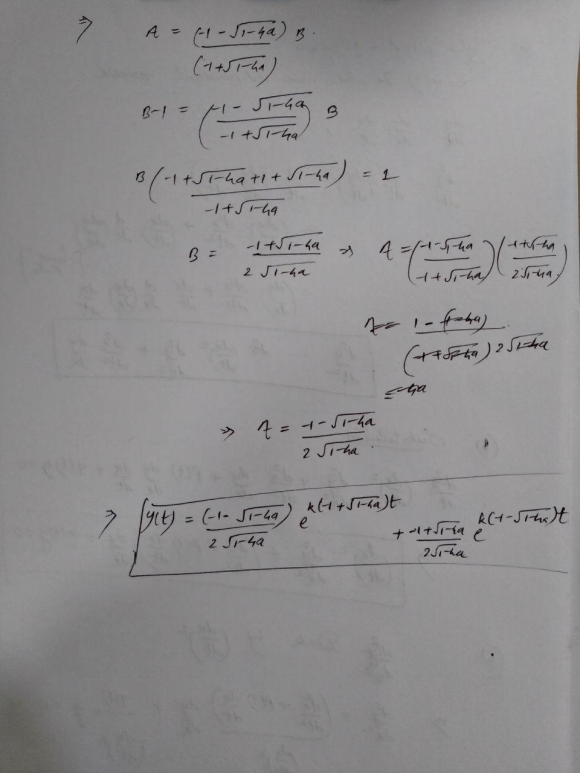 ⇒ A = (-1 - √1-4a) B. / (-1+√1-4a)
B-1 = (-1 - √1-4a / -1+√1-4a) B
B(-1+√1-4a+1+√1-4a) / -1+√1-4a = 1
B = -1+√1-4a / 2√1-4a ⇒ A = (-1-√1-4a / -1+√1-4a)(-1+√1-4a / 2√1-4a)
A = 1-(1-4a) / (-1+√1-4a) 2√1-4a
= 4a
⇒ A = -1-√1-4a / 2√1-4a
⇒ y(t) = (-1-√1-4a) / 2√1-4a e^k(-1+√1-4a)t
+ -1+√1-4a / 2√1-4a e^k(-1-√1-4a)t